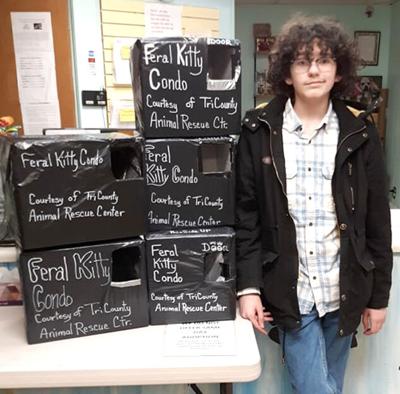 DOOR
Feral Kitty
Condo
Courtesy of TriCounty
Animal Rescue Ctr.
Feral Kitty Condo
Courtesy of TriCounty
Animal Rescue Center
Feral
Kitty Condo
Courtesy of TriCounty
Animal Rescue Center
Feral Kitty
Condo
Courtesy of TriCounty
Animal Rescue Ctr.
DOOR
Feral Kitty
Condo
Courtesy of TriCounty
Animal Rescue Center